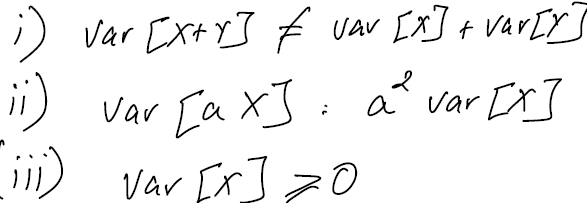 i) Var [X+Y] ≠ Var [X] + Var[Y]
ii) Var [a X] : a² Var [X]
(iii) Var [X] ⩾ 0